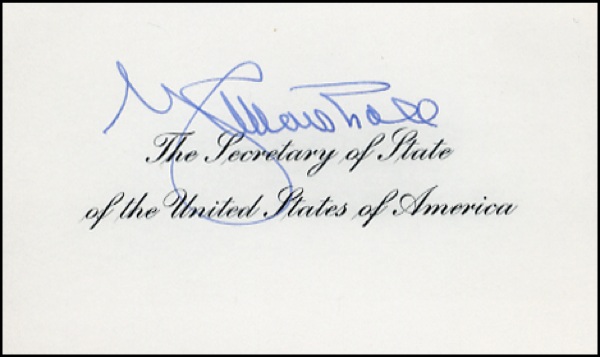 G. C. Marshall
The Secretary of State
of the United States of America